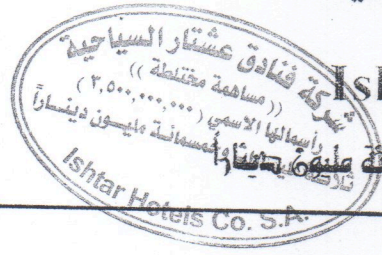 شركة فنادق عشتار السياحية
(( مساهمة مختلطة ))
رأسمالها الاسمي (٣,٥٠٠,٠٠٠,٠٠٠)
ثلاثة وخمسمائة مليون ديناراً
Ishtar Hotels Co. S.A.
Isl
مليون دينارا